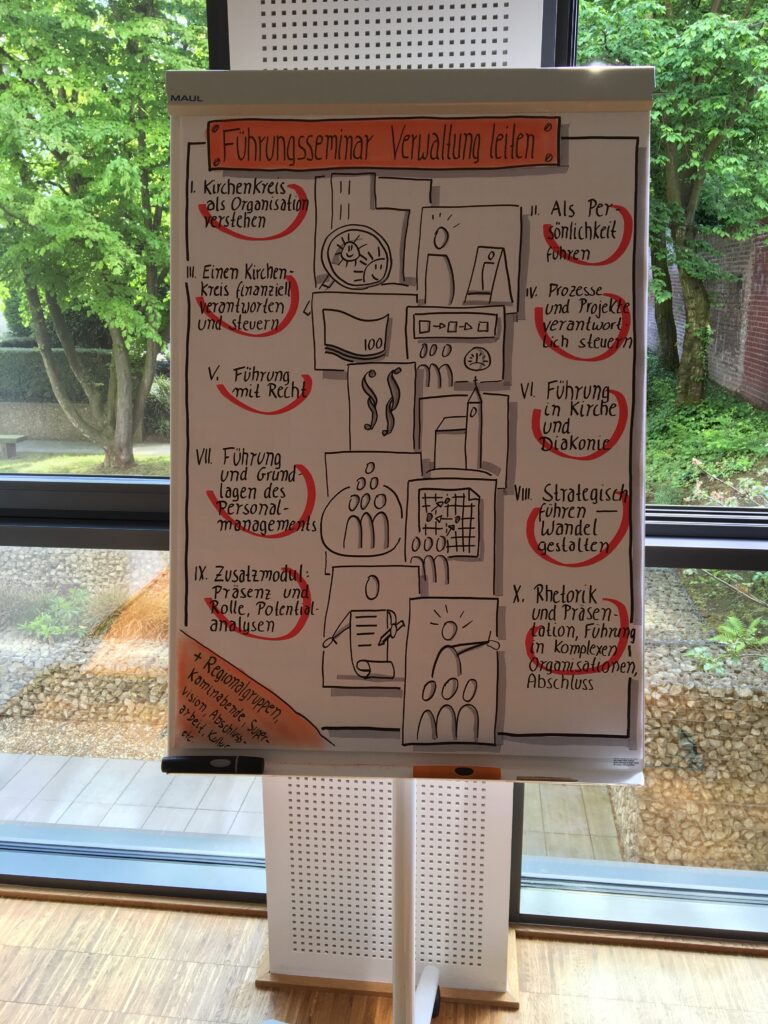 MAUL
Führungsseminar Verwaltung leiten
I. Kirchenkreis
als Organisation
verstehen
II. Als Per-
sönlichkeit
führen
III. Einen Kirchen-
kreis finanziell
verantworten
und steuern
IV. Prozesse
und Projekte
verantwort-
lich steuern
100
V. Führung
mit Recht
§ §
VI. Führung
in Kirche
und
Diakonie
VII. Führung
und Grund-
lagen des
Personal-
managements
VIII. Strategisch
führen —
Wandel
gestalten
IX. Zusatzmodul:
Präsenz und
Rolle, Potential-
analysen
X. Rhetorik
und Präsen-
tation, Führung
in Komplexen
Organisationen,
Abschluss
+ Regionalgruppen,
Kaminabende, Super-
vision, Abschluss-
arbeit,
etc.